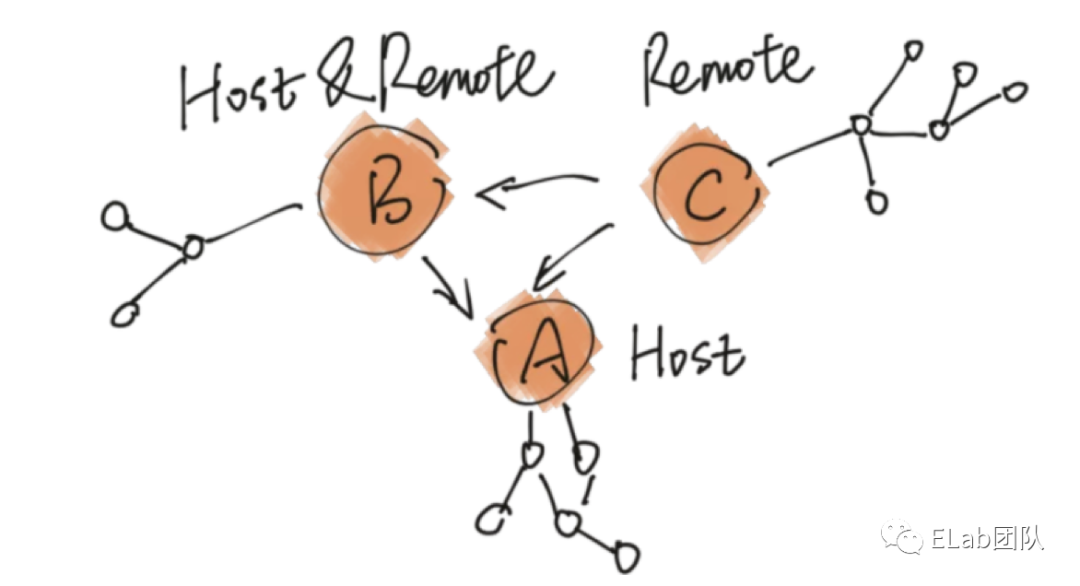 Host & Remote
Remote
B
C
A
Host
ELab团队